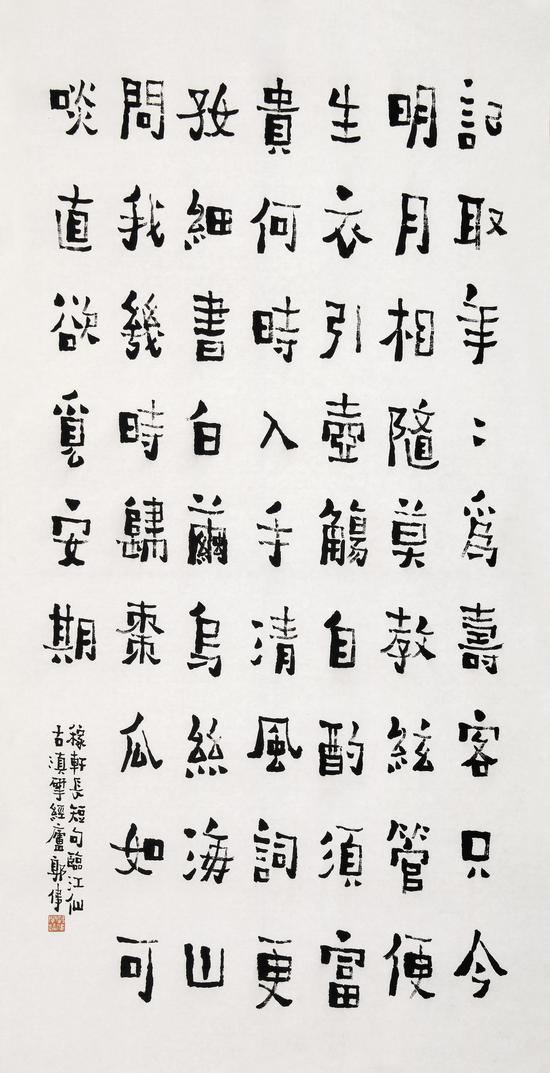 記取年〻為壽客只今
明月相隨莫教絃管便
生衣引壺觴自酌須富
貴何時入手清風詞更
好細書白繭烏絲海山
問我幾時歸棗瓜如可
啖直欲覓安期
稼軒長短句臨江仙
古滇經廬郭偉